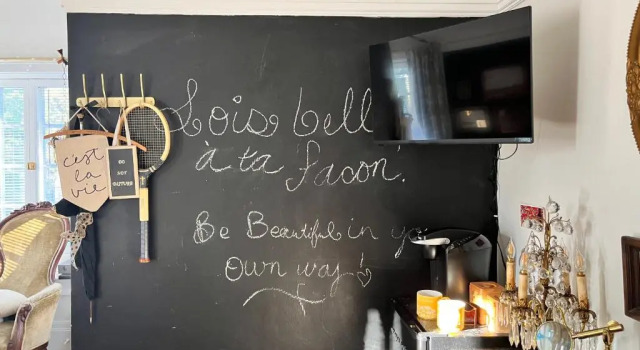 Lois bell
à ta facon.
Be Beautiful in yo
Own way!
c'est
la
vie
DO
NOT
DISTURB